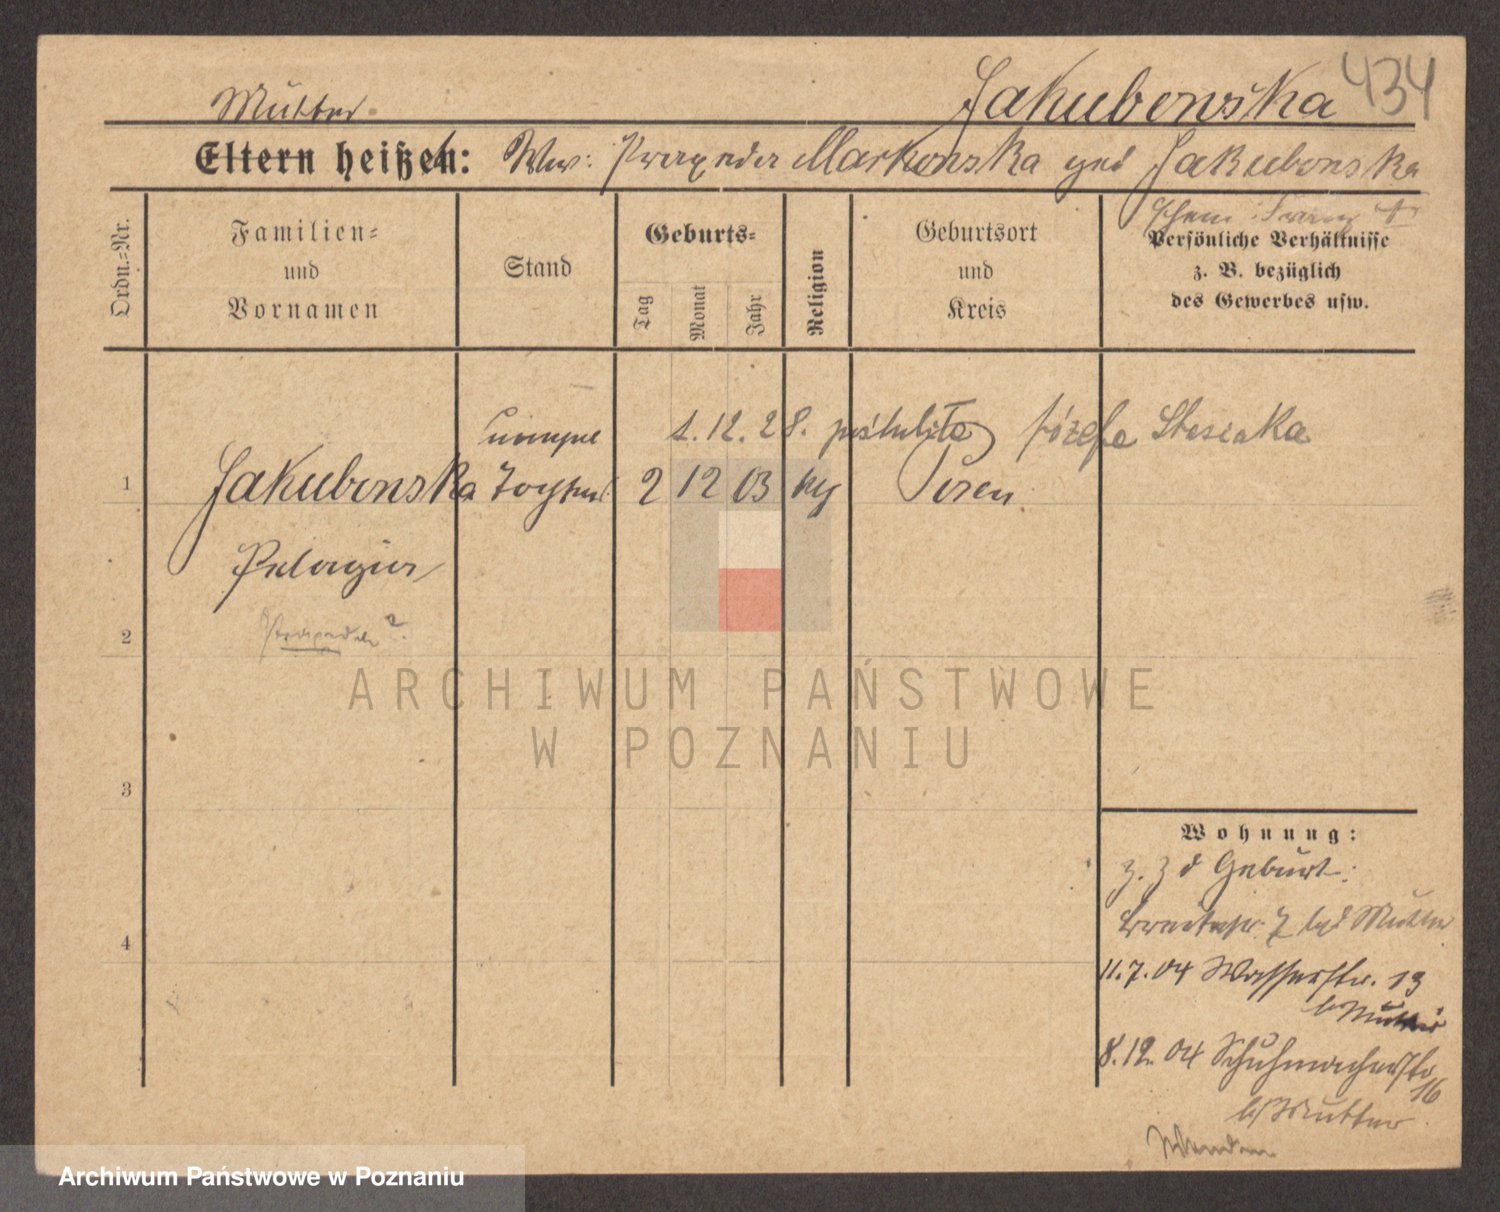 Jakubowska 434
Mutter
Eltern heißen: Ww: Praxeda Markowska geb Jakubowska
Ordn.-Nr.
Familien-
und
Vornamen
Stand
Geburts-
Tag
Monat
Jahr
Religion
Geburtsort
und
Kreis
Persönliche Verhältnisse
z. B. bezüglich
des Gewerbes usw.
1.12.28. poślubiła Józefa Stasiaka
1 Jakubowska 2 12 03 kg Posen
Pelagia
2 ?
3
4
Wohnung:
z. Z d Geburt:
7 Mutter
11.7.04 Wasserstr. 13
b Mutter
8.12.04 Schuhmacherstr
16
b/Mutter
Wenden
ARCHIWUM PAŃSTWOWE
W POZNANIU
Archiwum Państwowe w Poznaniu